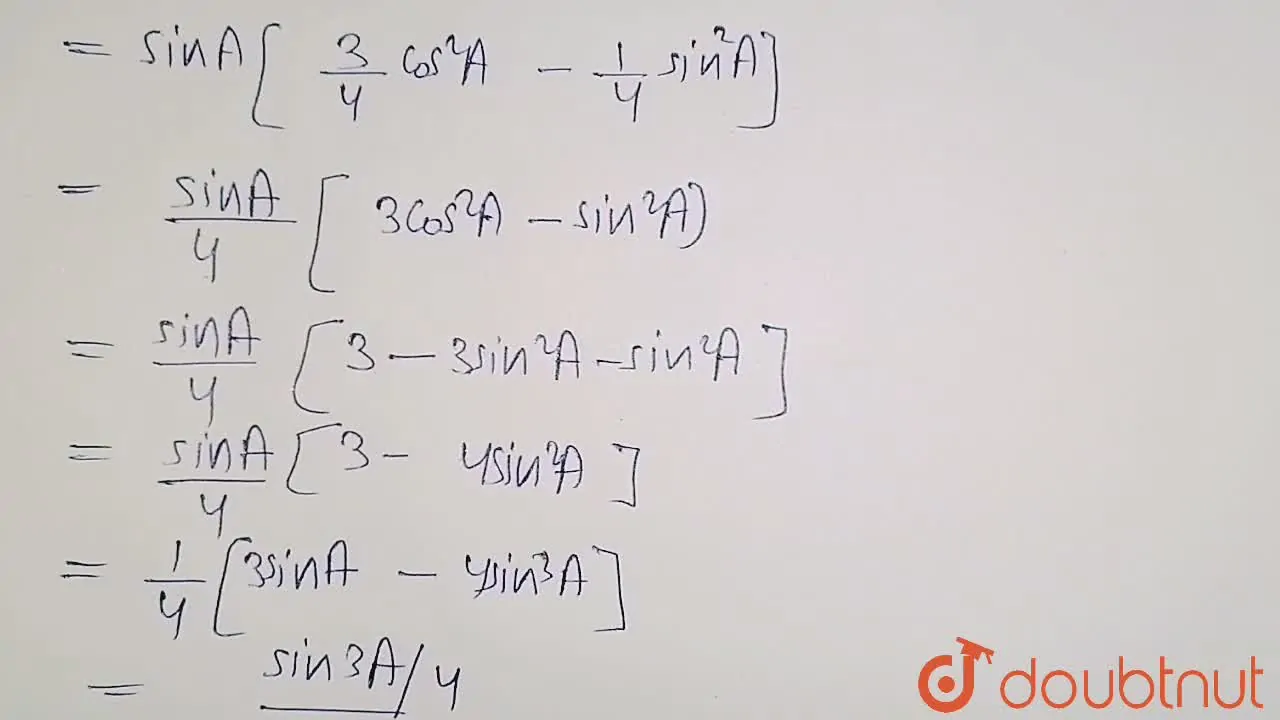 = sinA[ 3/4 cos²A - 1/4 sin²A]
= sinA/4 [ 3cos²A - sin²A)
= sinA/4 [3 - 3sin²A - sin²A]
= sinA/4 [3 - 4sin²A]
= 1/4 [3sinA - 4sin³A]
= sin3A/4
doubtnut